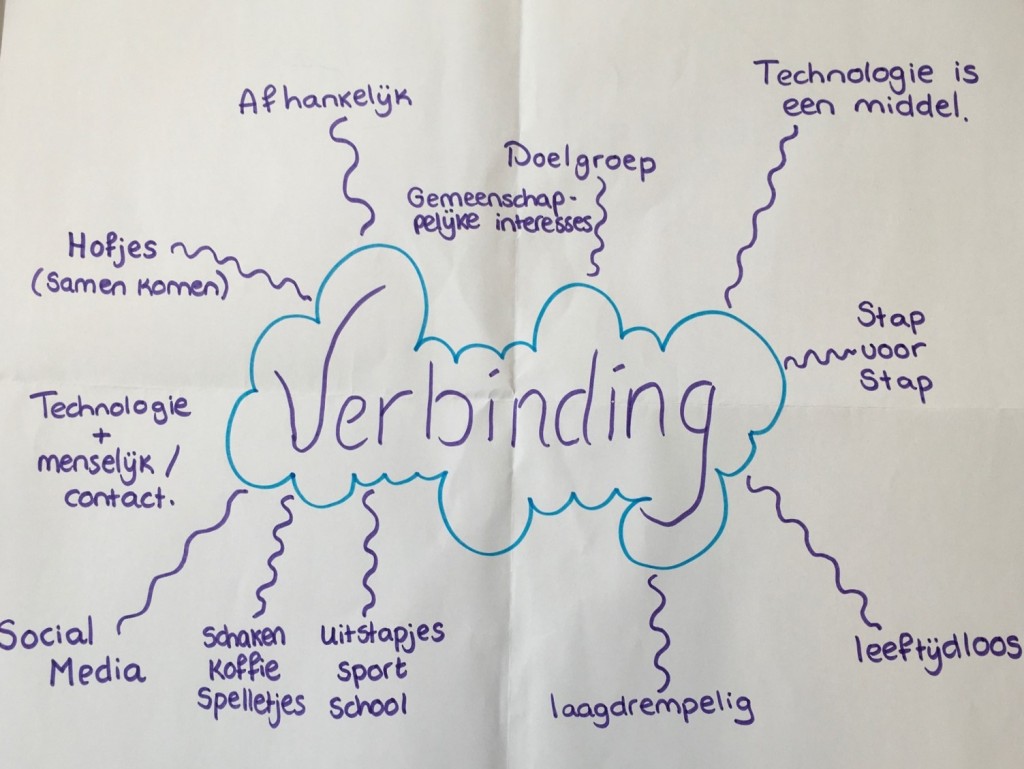 Afhankelijk
Technologie is
een middel.
Doelgroep
Gemeenschap-
pelijke interesses
Hofjes
(Samen komen)
Stap
voor
Stap
Verbinding
Technologie
+
menselijk /
contact.
Social
Media
Schaken
Koffie
Spelletjes
Uitstapjes
Sport
School
laagdrempelig
leeftijdloos